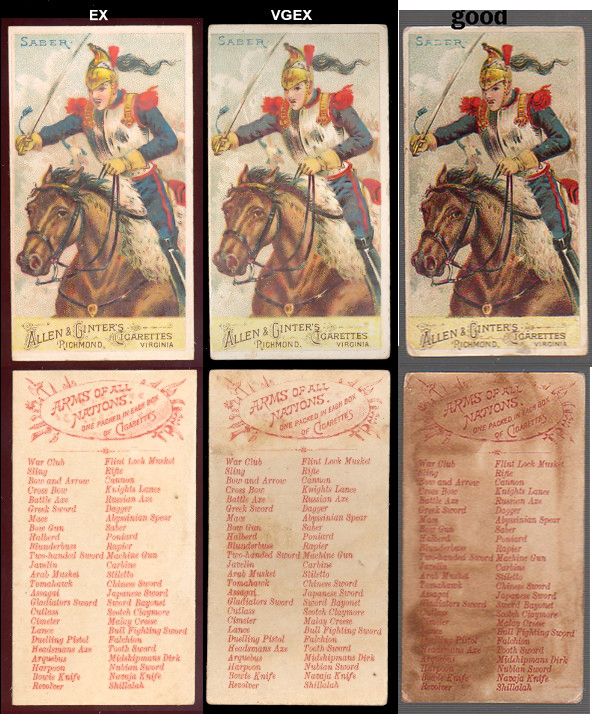 EX
SABER.
ALLEN & GINTER'S CIGARETTES
RICHMOND, VIRGINIA
VGEX
SABER.
ALLEN & GINTER'S CIGARETTES
RICHMOND, VIRGINIA
good
SABER.
ALLEN & GINTER'S CIGARETTES
RICHMOND, VIRGINIA
ARMS OF ALL
NATIONS.
ONE PACKED IN EACH BOX
OF CIGARETTES
War Club Flint Lock Musket
Sling Rifle
Bow and Arrow Cannon
Cross Bow Knights Lance
Battle Axe Russian Axe
Greek Sword Dagger
Mace Abyssinian Spear
Bow Gun Saber
Halberd Poniard
Blunderbuss Rapier
Two-handed Sword Machine Gun
Javelin Carbine
Arab Musket Stiletto
Tomahawk Chinese Sword
Assagai Japanese Sword
Gladiators Sword Sword Bayonet
Cutlass Scotch Claymore
Cimeter Malay Creese
Lance Bull Fighting Sword
Duelling Pistol Falchion
Headsmans Axe Tooth Sword
Arquebus Midshipmans Dirk
Harpoon Nubian Sword
Bowie Knife Navaja Knife
Revolver Shillalah
ARMS OF ALL
NATIONS.
ONE PACKED IN EACH BOX
OF CIGARETTES
War Club Flint Lock Musket
Sling Rifle
Bow and Arrow Cannon
Cross Bow Knights Lance
Battle Axe Russian Axe
Greek Sword Dagger
Mace Abyssinian Spear
Bow Gun Saber
Halberd Poniard
Blunderbuss Rapier
Two-handed Sword Machine Gun
Javelin Carbine
Arab Musket Stiletto
Tomahawk Chinese Sword
Assagai Japanese Sword
Gladiators Sword Sword Bayonet
Cutlass Scotch Claymore
Cimeter Malay Creese
Lance Bull Fighting Sword
Duelling Pistol Falchion
Headsmans Axe Tooth Sword
Arquebus Midshipmans Dirk
Harpoon Nubian Sword
Bowie Knife Navaja Knife
Revolver Shillalah
ARMS OF ALL
NATIONS.
ONE PACKED IN EACH BOX
OF CIGARETTES
War Club Flint Lock Musket
Sling Rifle
Bow and Arrow Cannon
Cross Bow Knights Lance
Battle Axe Russian Axe
Greek Sword Dagger
Mace Abyssinian Spear
Bow Gun Saber
Halberd Poniard
Blunderbuss Rapier
Two-handed Sword Machine Gun
Javelin Carbine
Arab Musket Stiletto
Tomahawk Chinese Sword
Assagai Japanese Sword
Gladiators Sword Sword Bayonet
Cutlass Scotch Claymore
Cimeter Malay Creese
Lance Bull Fighting Sword
Duelling Pistol Falchion
Headsmans Axe Tooth Sword
Arquebus Midshipmans Dirk
Harpoon Nubian Sword
Bowie Knife Navaja Knife
Revolver Shillalah